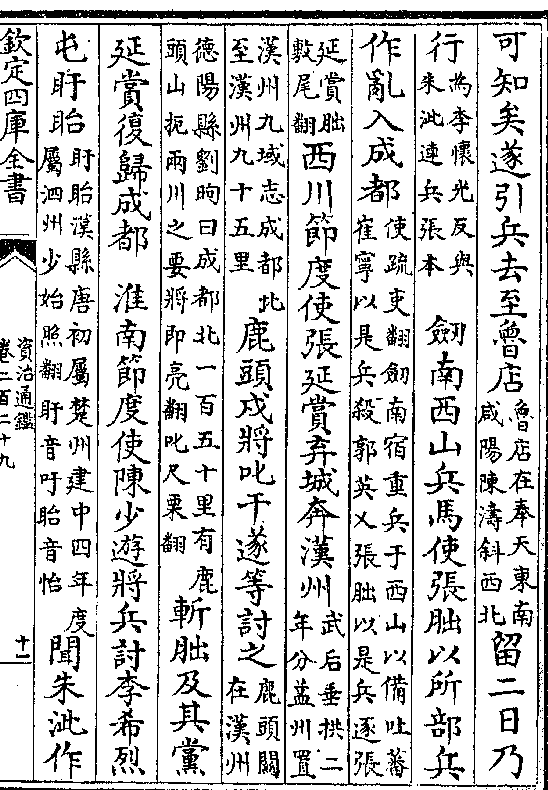 可知矣遂引兵去至魯店魯店在奉天東南咸陽陳濤斜西北留二日乃
行為李懷光反與朱泚連兵張本 劒南西山兵馬使張朏以所部兵
作亂入成都使疏吏翻劒南宿重兵于西山以備吐蕃崔寧以是兵殺郭英乂張朏以是兵逐張
延賞朏敷尾翻西川節度使張延賞弃城奔漢州武后垂拱二年分益州置
漢州九域志成都北至漢州九十五里鹿頭戍將叱干遂等討之鹿頭關在漢州
德陽縣劉昫曰成都北一百五十里有鹿頭山扼兩川之要將即亮翻叱尺栗翻斬朏及其黨
延賞復歸成都 淮南節度使陳少遊將兵討李希烈
屯盱眙盱眙漢縣唐初屬楚州建中四年度屬泗州少始照翻盱音吁眙音怡聞朱泚作
欽定四庫全書
資治通鑑
卷二百二十九
十一